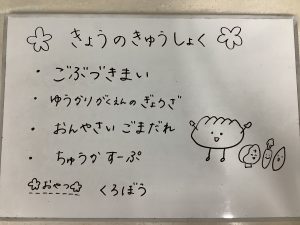 きょうのきゅうしょく
・ごぶづきまい
・ゆうかりがくえんのぎょうざ
・おんやさいごまだれ
・ちゅうかすーぷ
おやつ くろぼう